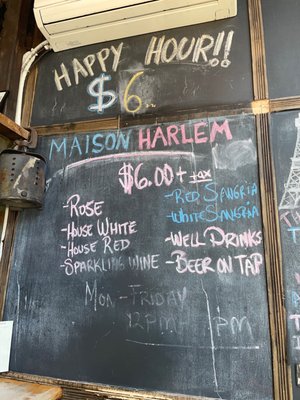 HAPPY HOUR!!
$6..
MAISON HARLEM
$6.00+tax
-ROSE
-HOUSE WHITE
-HOUSE RED
-SPARKLING WINE
-RED SANGRIA
-WHITE SANGRIA
-WELL DRINKS
-BEER ON TAP
MON-FRIDAY
12PM 7PM